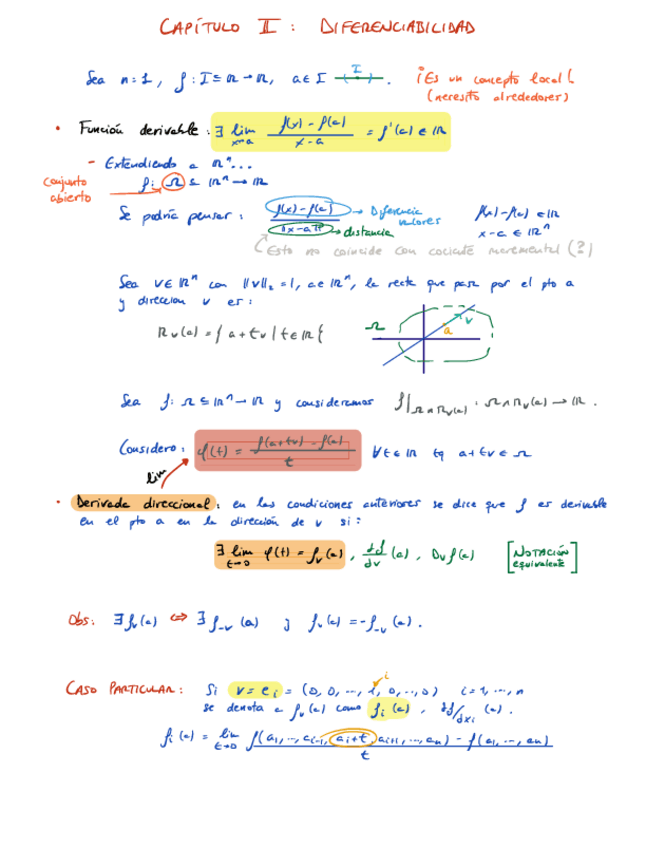 CAPÍTULO II : DIFERENCIABILIDAD
Sea n=1, f: I⊆ℝ→ℝ, a∈I I (·) . ¡Es un concepto local!
(necesito alrededores)
• Función derivable: ∃ lim x→a (f(x) - f(a))/(x-a) = f'(a) ∈ ℝ
- Extendiendo a ℝⁿ...
conjunto abierto f: Ω ⊆ ℝⁿ → ℝ
Se podría pensar: (f(x) - f(a))/‖x-a‖ → Diferencia valores → distancia f(x)-f(a) ∈ ℝ
x-a ∈ ℝⁿ
Esto no coincide con cociente incremental (?)
Sea v∈ℝⁿ con ‖v‖₂ =1, a∈ℝⁿ, la recta que pasa por el pto a
y dirección v es:
Rv(a) = { a+tv | t∈ℝ } Ω a v
Sea f: Ω⊆ℝⁿ→ℝ y consideramos f|Ω∩Rv(a) : Ω∩Rv(a) → ℝ.
Considero: φ(t) = (f(a+tv) - f(a))/t ∀t∈ℝ tq a+tv∈Ω
lim
• Derivada direccional: en las condiciones anteriores se dice que f es derivable
en el pto a en la dirección de v si:
∃ lim t→0 φ(t) = fv(a), ∂f/∂v (a), Dv f(a) [NOTACIÓN equivalente]
Obs: ∃ fv(a) ⇔ ∃ f-v(a) y fv(a) = -f-v(a).
CASO PARTICULAR: Si v = eᵢ = (0, 0, ..., 1, 0, ..., 0) i=1, ..., n
i
se denota a fv(a) como fᵢ(a), ∂f/∂xᵢ (a).
fᵢ(a) = lim t→0 (f(a₁, ..., aᵢ₋₁, aᵢ+t, aᵢ₊₁, ..., aₙ) - f(a₁, ..., aₙ))/t